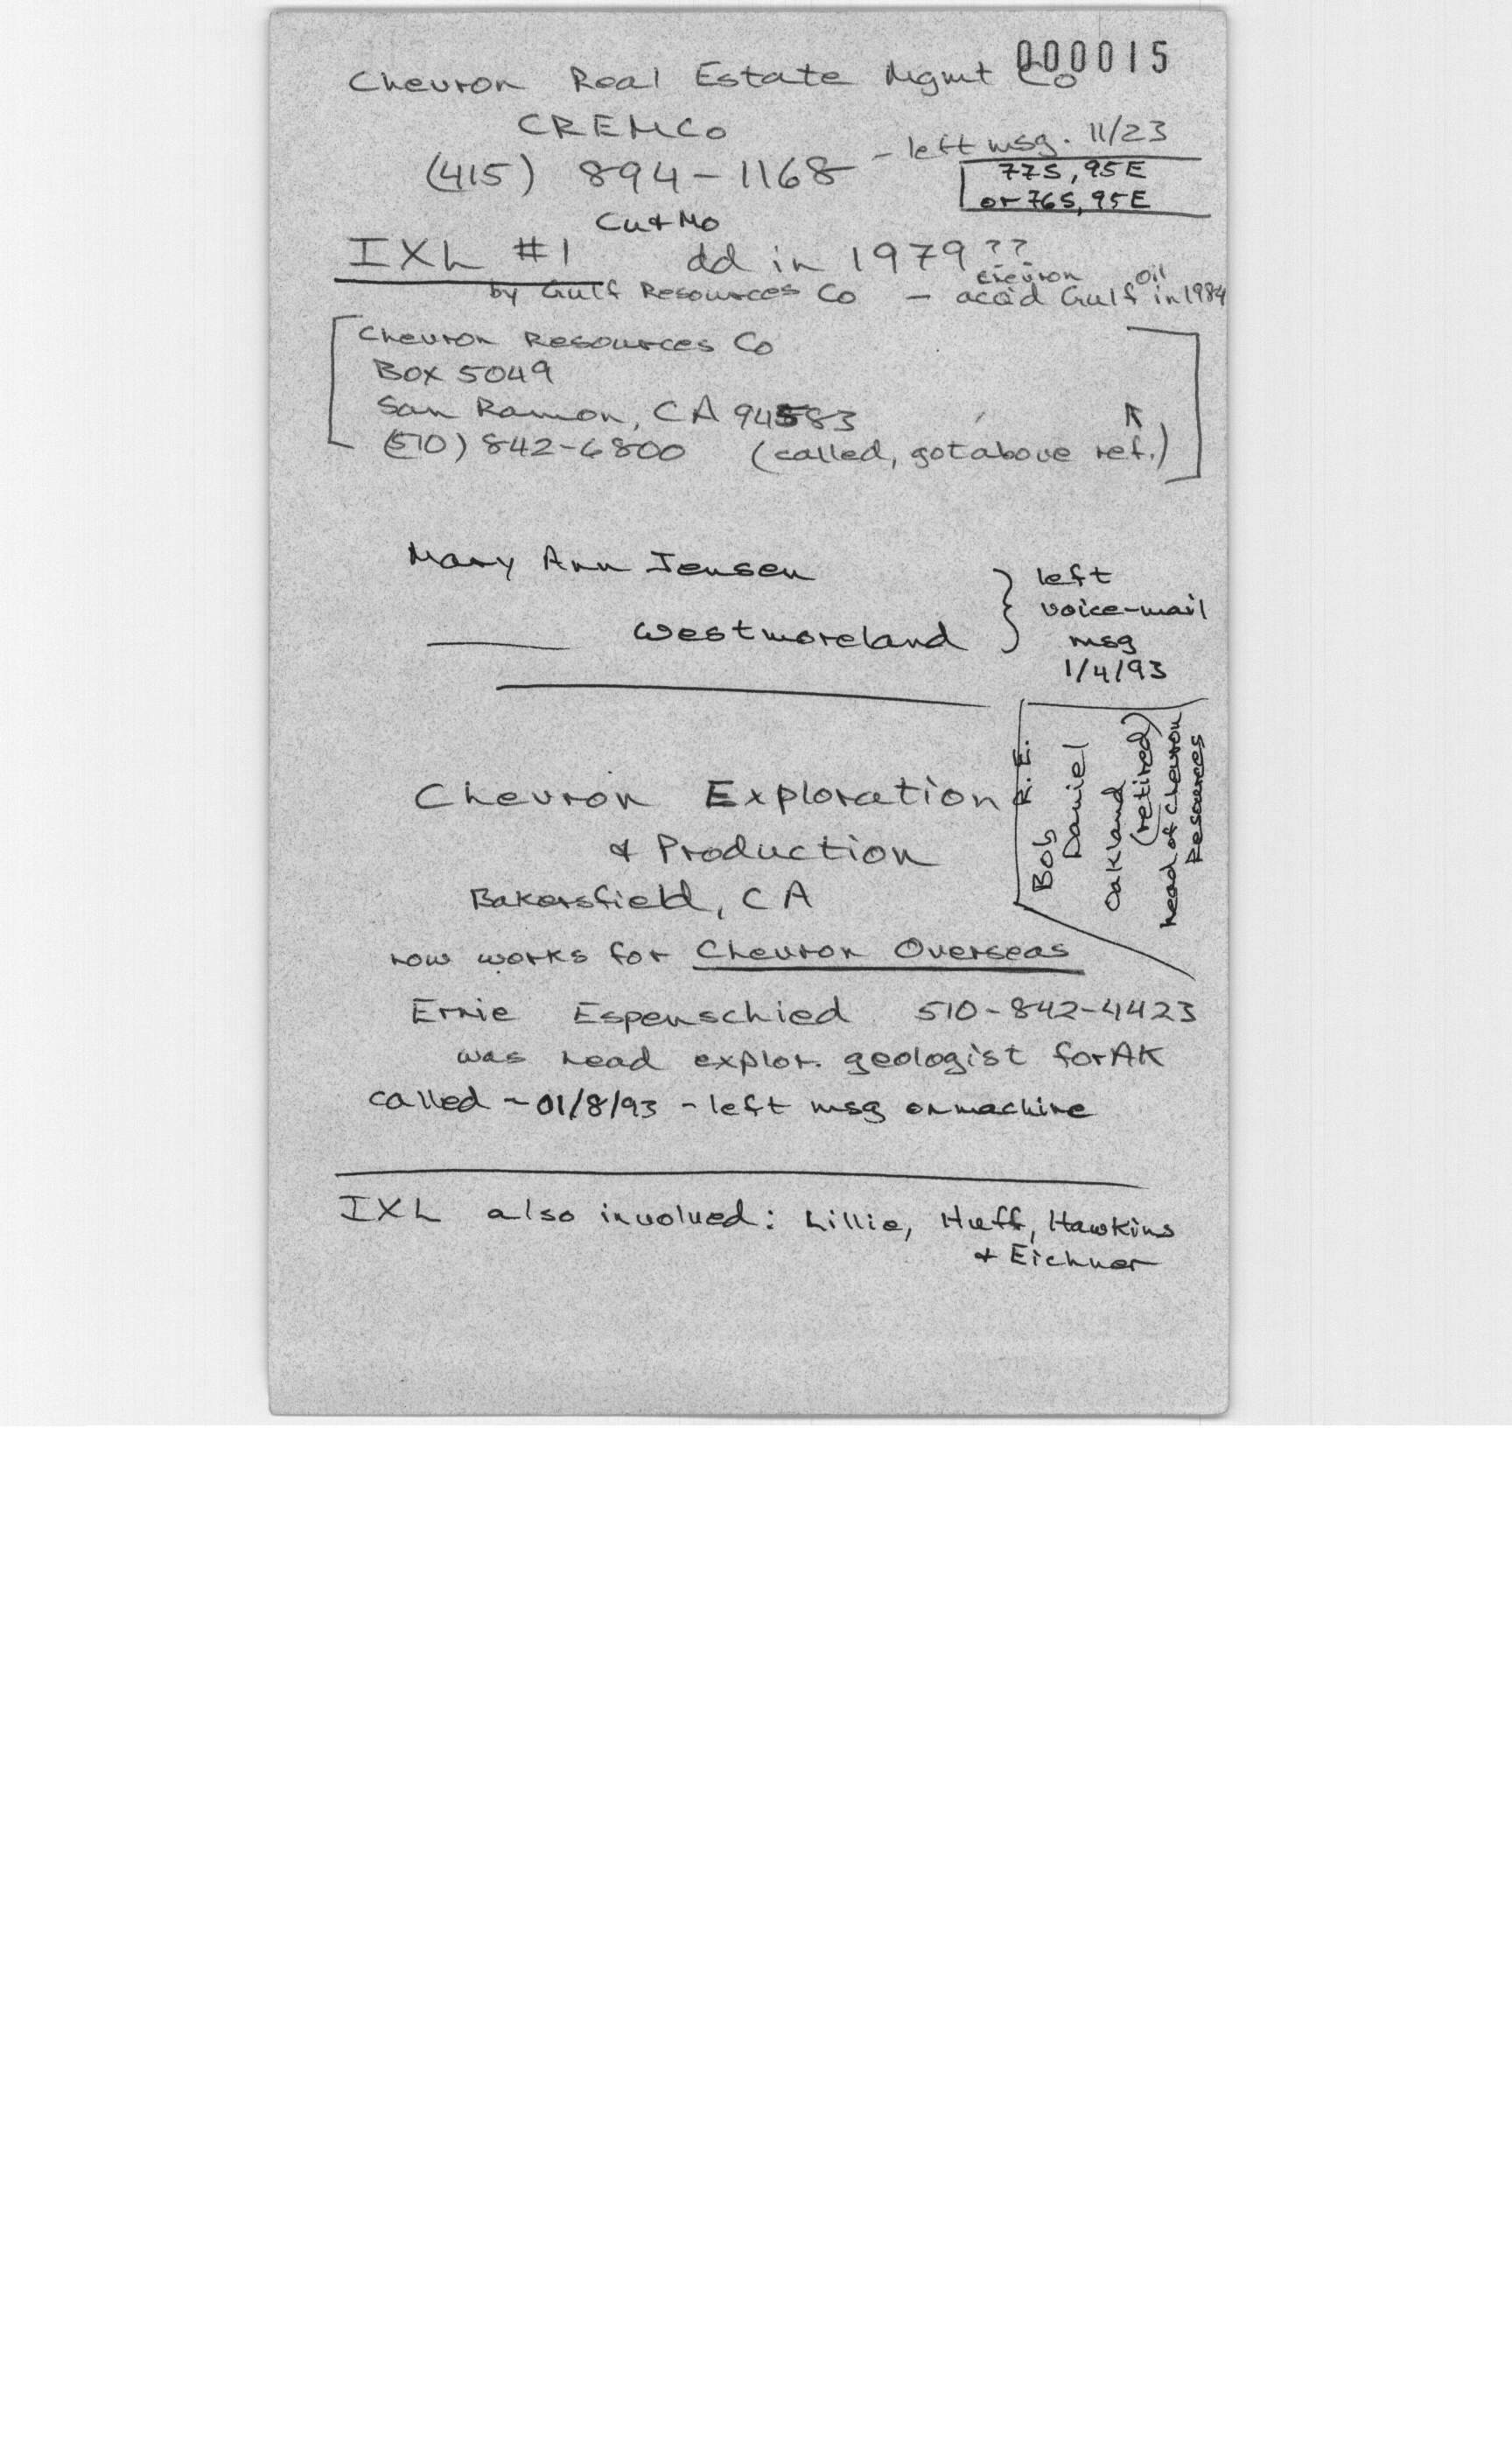 000015
Chevron Real Estate Mgmt Co
CREMCo
(415) 894-1168 - left msg. 11/23
77S, 95E
or 76S, 95E
Cu & Mo
IXL #1 dd in 1979??
by Gulf Resources Co - Chevron acq'd Gulf Oil in 1984
Chevron Resources Co
Box 5049
San Ramon, CA 94583
(510) 842-6800 (called, got above ref.)
Mary Ann Jensen
Westmoreland
left
voice-mail
msg
1/4/93
R.E.
Bob
Daniel
Oakland
(retired)
head of Chevron
Resources
Chevron Exploration
& Production
Bakersfield, CA
now works for Chevron Overseas
Ernie Espenschied 510-842-4423
was head explor. geologist for AK
called - 01/8/93 - left msg on machine
IXL also involved: Lillie, Huff, Hawkins
& Eichner